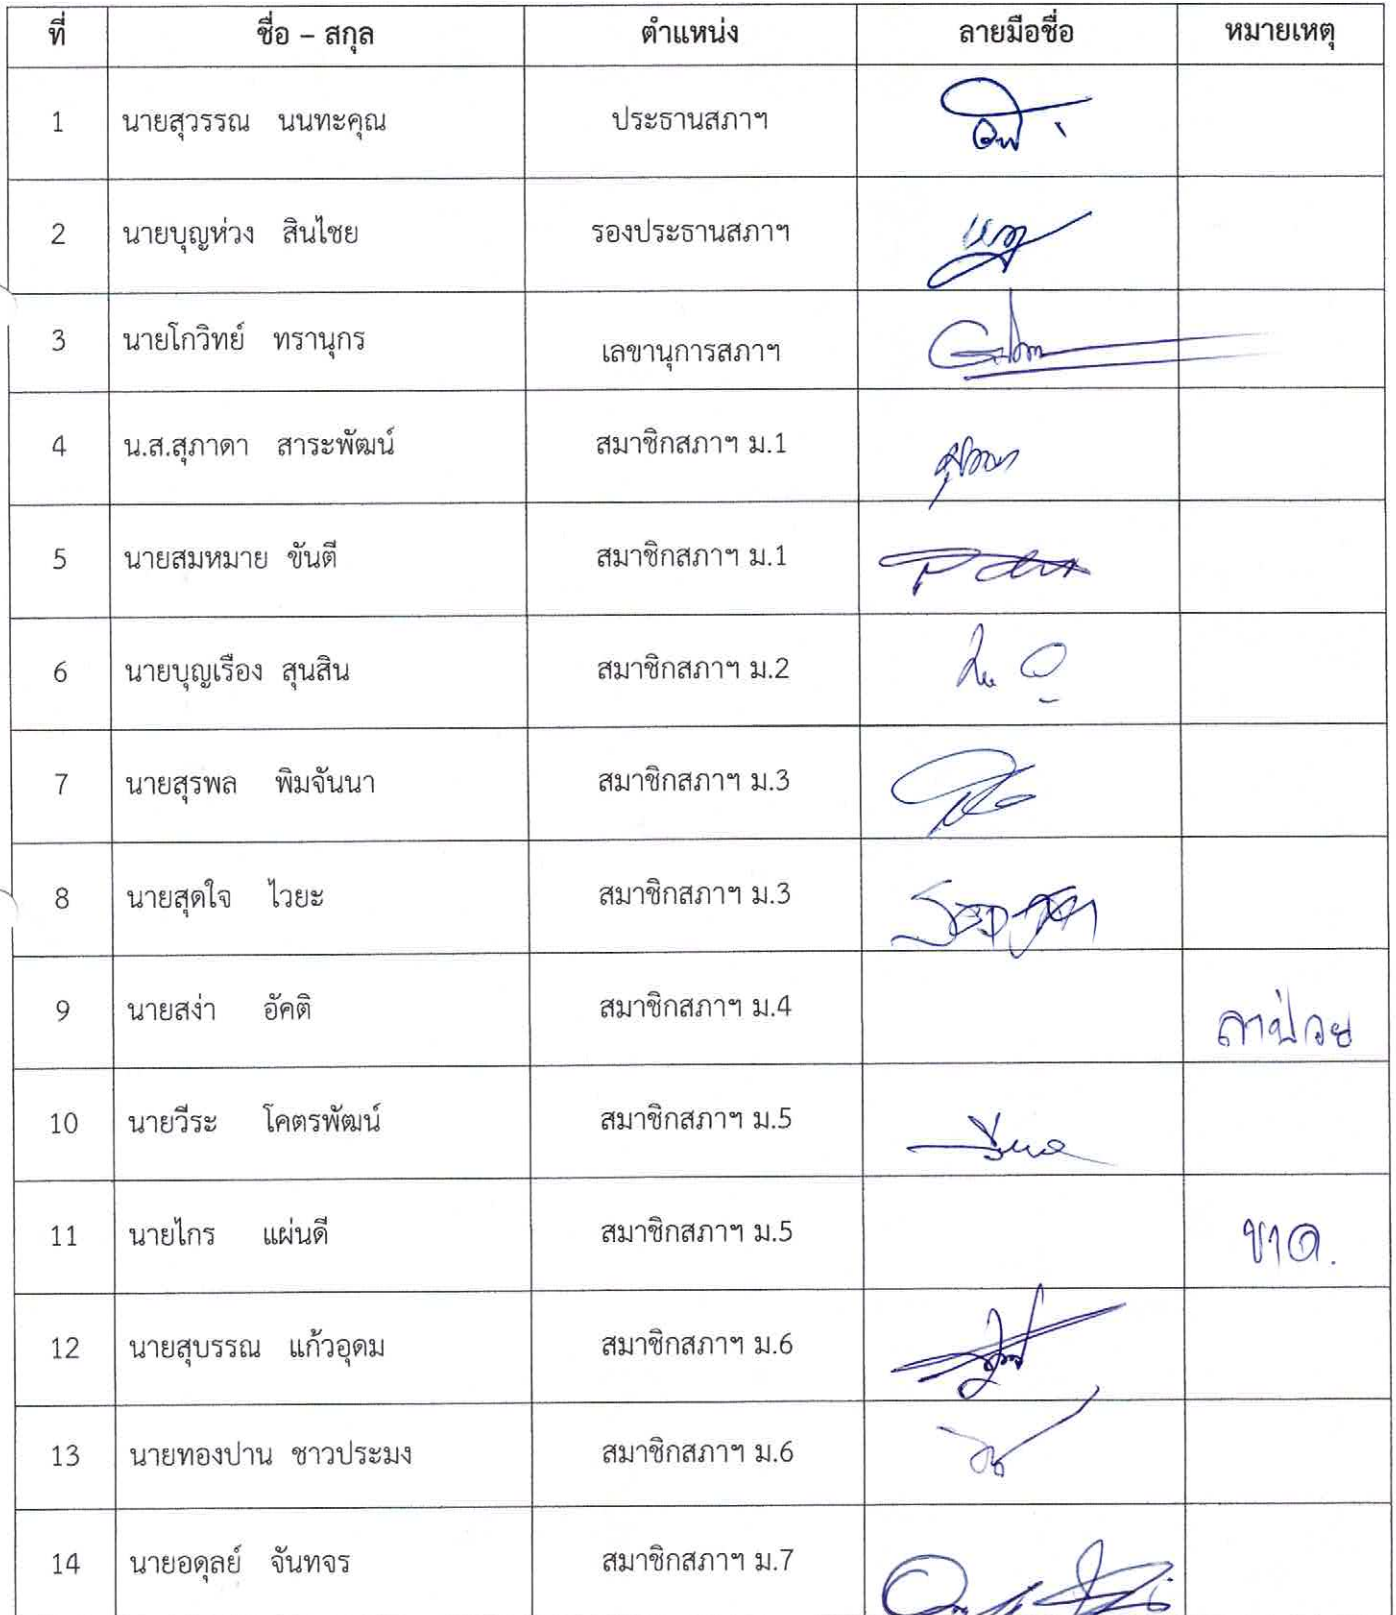 ที่ ชื่อ – สกุล ตำแหน่ง ลายมือชื่อ หมายเหตุ
1 นายสุวรรณ นนทะคุณ ประธานสภาฯ
2 นายบุญห่วง สินไชย รองประธานสภาฯ
3 นายโกวิทย์ ทรานุกร เลขานุการสภาฯ
4 น.ส.สุภาดา สาระพัฒน์ สมาชิกสภาฯ ม.1
5 นายสมหมาย ขันตี สมาชิกสภาฯ ม.1
6 นายบุญเรือง สุนสิน สมาชิกสภาฯ ม.2
7 นายสุรพล พิมจันนา สมาชิกสภาฯ ม.3
8 นายสุดใจ ไวยะ สมาชิกสภาฯ ม.3
9 นายสง่า อัคติ สมาชิกสภาฯ ม.4 ลาป่วย
10 นายวีระ โคตรพัฒน์ สมาชิกสภาฯ ม.5
11 นายไกร แผ่นดี สมาชิกสภาฯ ม.5 ขาด.
12 นายสุบรรณ แก้วอุดม สมาชิกสภาฯ ม.6
13 นายทองปาน ชาวประมง สมาชิกสภาฯ ม.6
14 นายอดุลย์ จันทจร สมาชิกสภาฯ ม.7